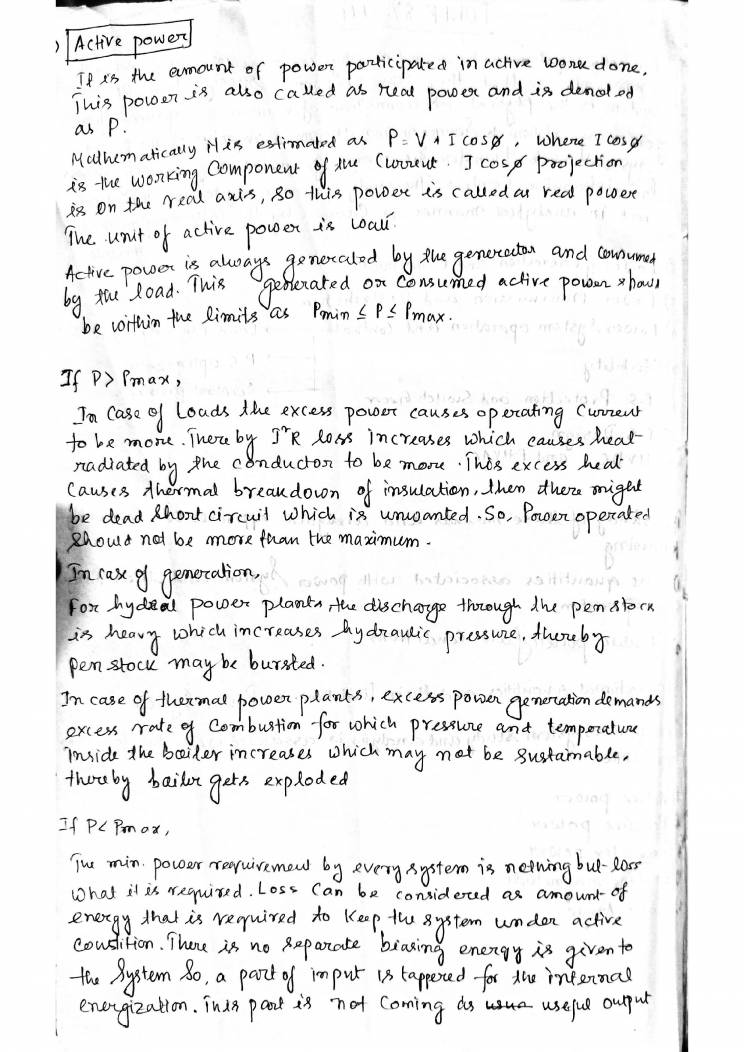 ) Active power
It is the amount of power participated in active work done.
This power is also called as real power and is denoted
as P.
Mathematically it is estimated as P = V * I cosφ, where I cosφ
is the working component of the current. I cosφ projection
is on the real axis, so this power is called as real power
The unit of active power is watt.
Active power is always generated by the generator and consumed
by the load. This generated or consumed active power should
be within the limits as Pmin ≤ P ≤ Pmax.
If P > Pmax,
In case of Loads the excess power causes operating current
to be more. There by I²R loss increases which causes heat
radiated by the conductor to be more. This excess heat
causes thermal breakdown of insulation, then there might
be dead short circuit which is unwanted. So, Power operated
should not be more than the maximum.
In case of generation,
For hydral power plants the discharge through the pen stock
is heavy which increases hydraulic pressure, there by
pen stock may be bursted.
In case of thermal power plants, excess power generation demands
excess rate of combustion for which pressure and temperature
inside the boiler increases which may not be sustainable,
there by boiler gets exploded
If P < Pmax,
The min. power requirement by every system is nothing but loss
what it is required. Loss can be considered as amount of
energy that is required to keep the system under active
condition. There is no separate biasing energy is given to
the system So, a part of input is tappered for the internal
energization. This part is not coming as useful output